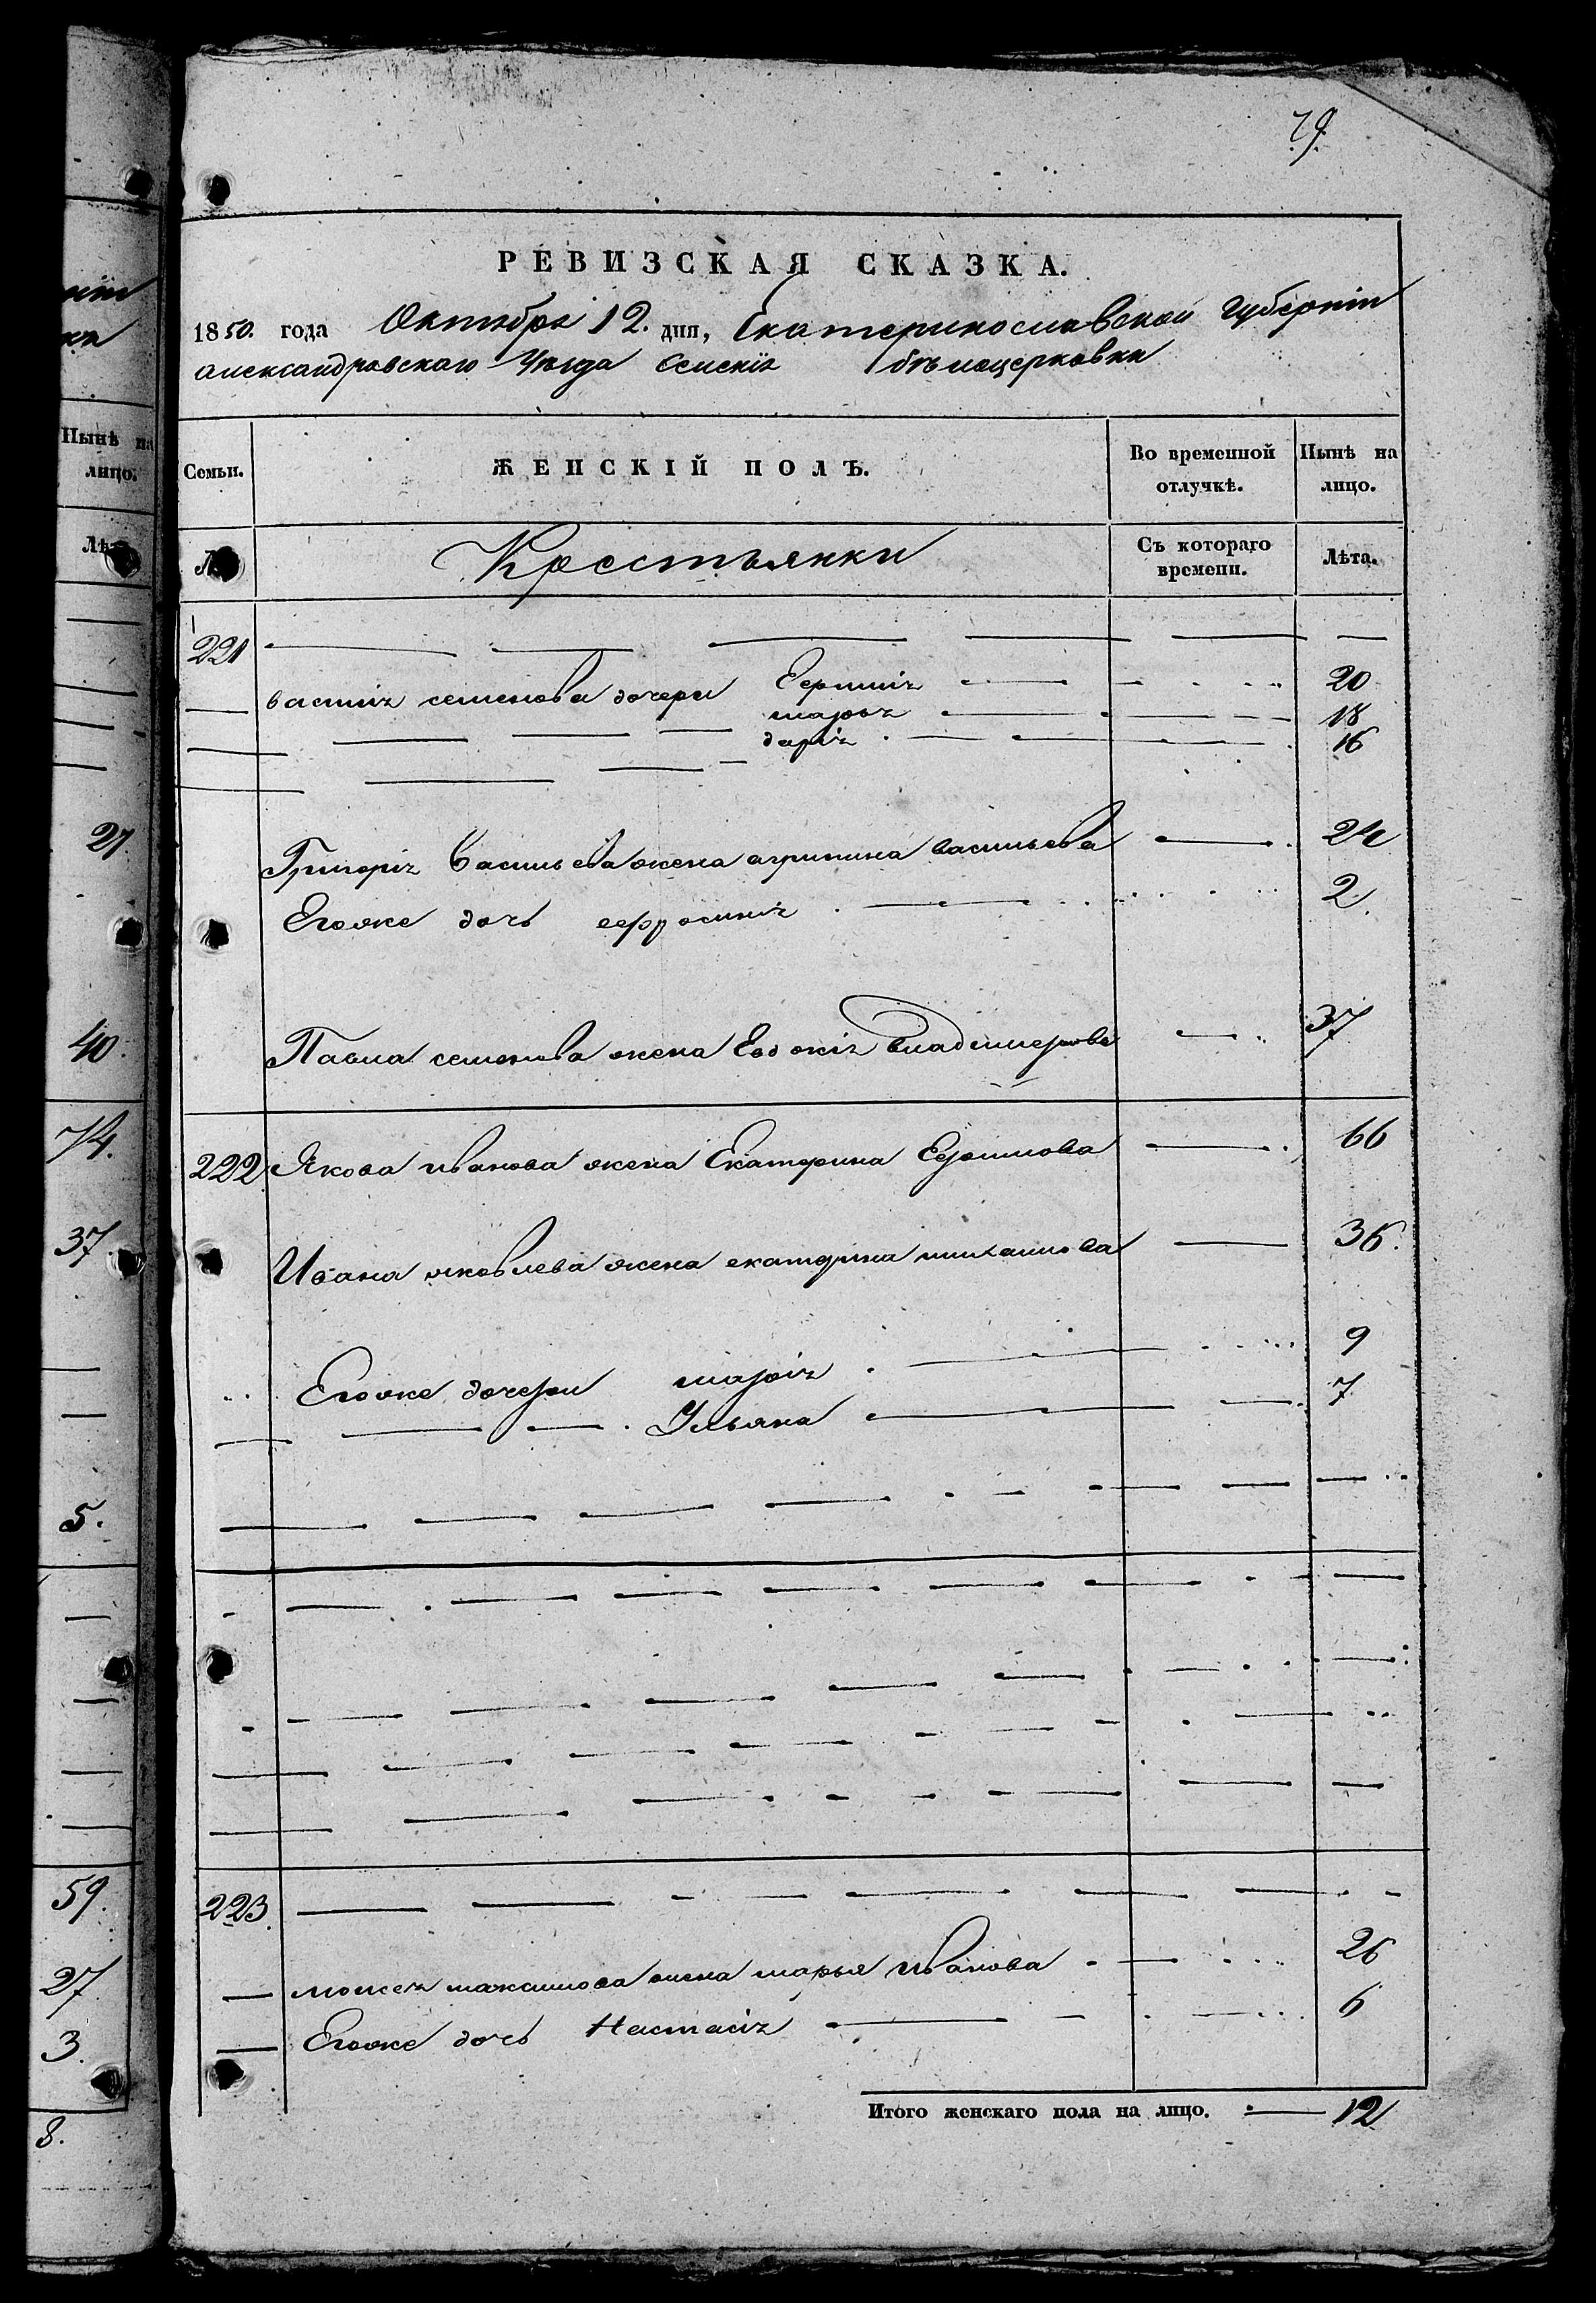 79.
РЕВИЗСКАЯ СКАЗКА.
1850. года Октября 12. дня, Екатеринославской Губерніи
александровскаго Уѣзда Селенія бѣлоцерковки
Нынѣ на лицо.
Семьи. ЖЕНСКІЙ ПОЛЪ. Во временной отлучкѣ. Нынѣ на лицо.
Крестьянки Съ котораго времени. Лѣта.
221
василія семенова дочери 20
марья 18
дарія 16
Григорія Васильева жена агрипина васильева 24
Егоже дочь ефросинія 2.
Павла семенова жена Евдокія Владимерова 37
222 Якова иванова жена Екатерина 66
Ивана яковлева жена екатерина михаилова 36.
Егоже дочери марія 9
Ульяна 7
223.
моисея максимова жена марья иванова 26
Егоже дочь Настасія 6
Итого женскаго пола на лицо. 12
27
40.
74.
37.
5.
59.
27
3.
8.